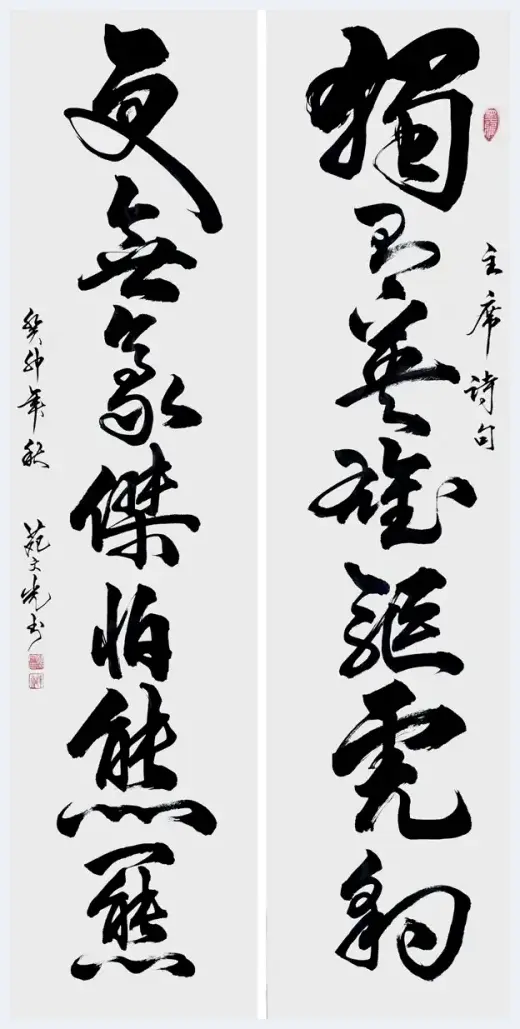 主席詩句
獨有英雄驅虎豹
更無豪傑怕熊羆
癸卯年秋 苑文光书